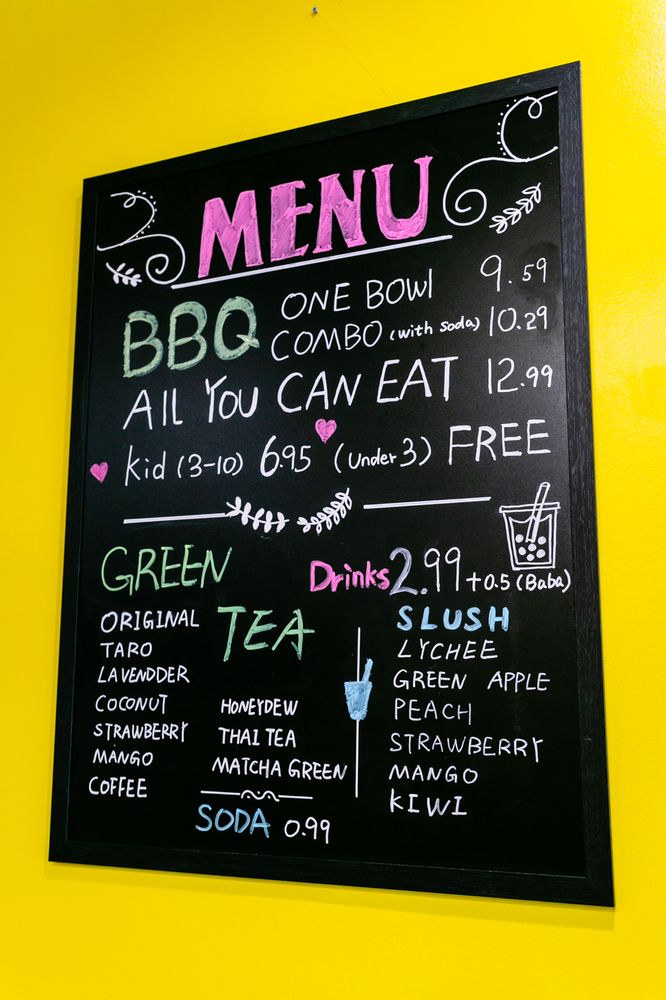 MENU
BBQ ONE BOWl 9.59
COMBO (with soda) 10.29
All YOU CAN EAT 12.99
kid (3-10) 6.95 (under 3) FREE
GREEN TEA
ORIGINAL
TARO
LAVENDDER
COCONUT
STRAWBERRY
MANGO
COFFEE
HONEYDEW
THAI TEA
MATCHA GREEN
SODA 0.99
Drinks 2.99 +0.5 (Baba)
SLUSH
LYCHEE
GREEN APPLE
PEACH
STRAWBERRY
MANGO
KIWI